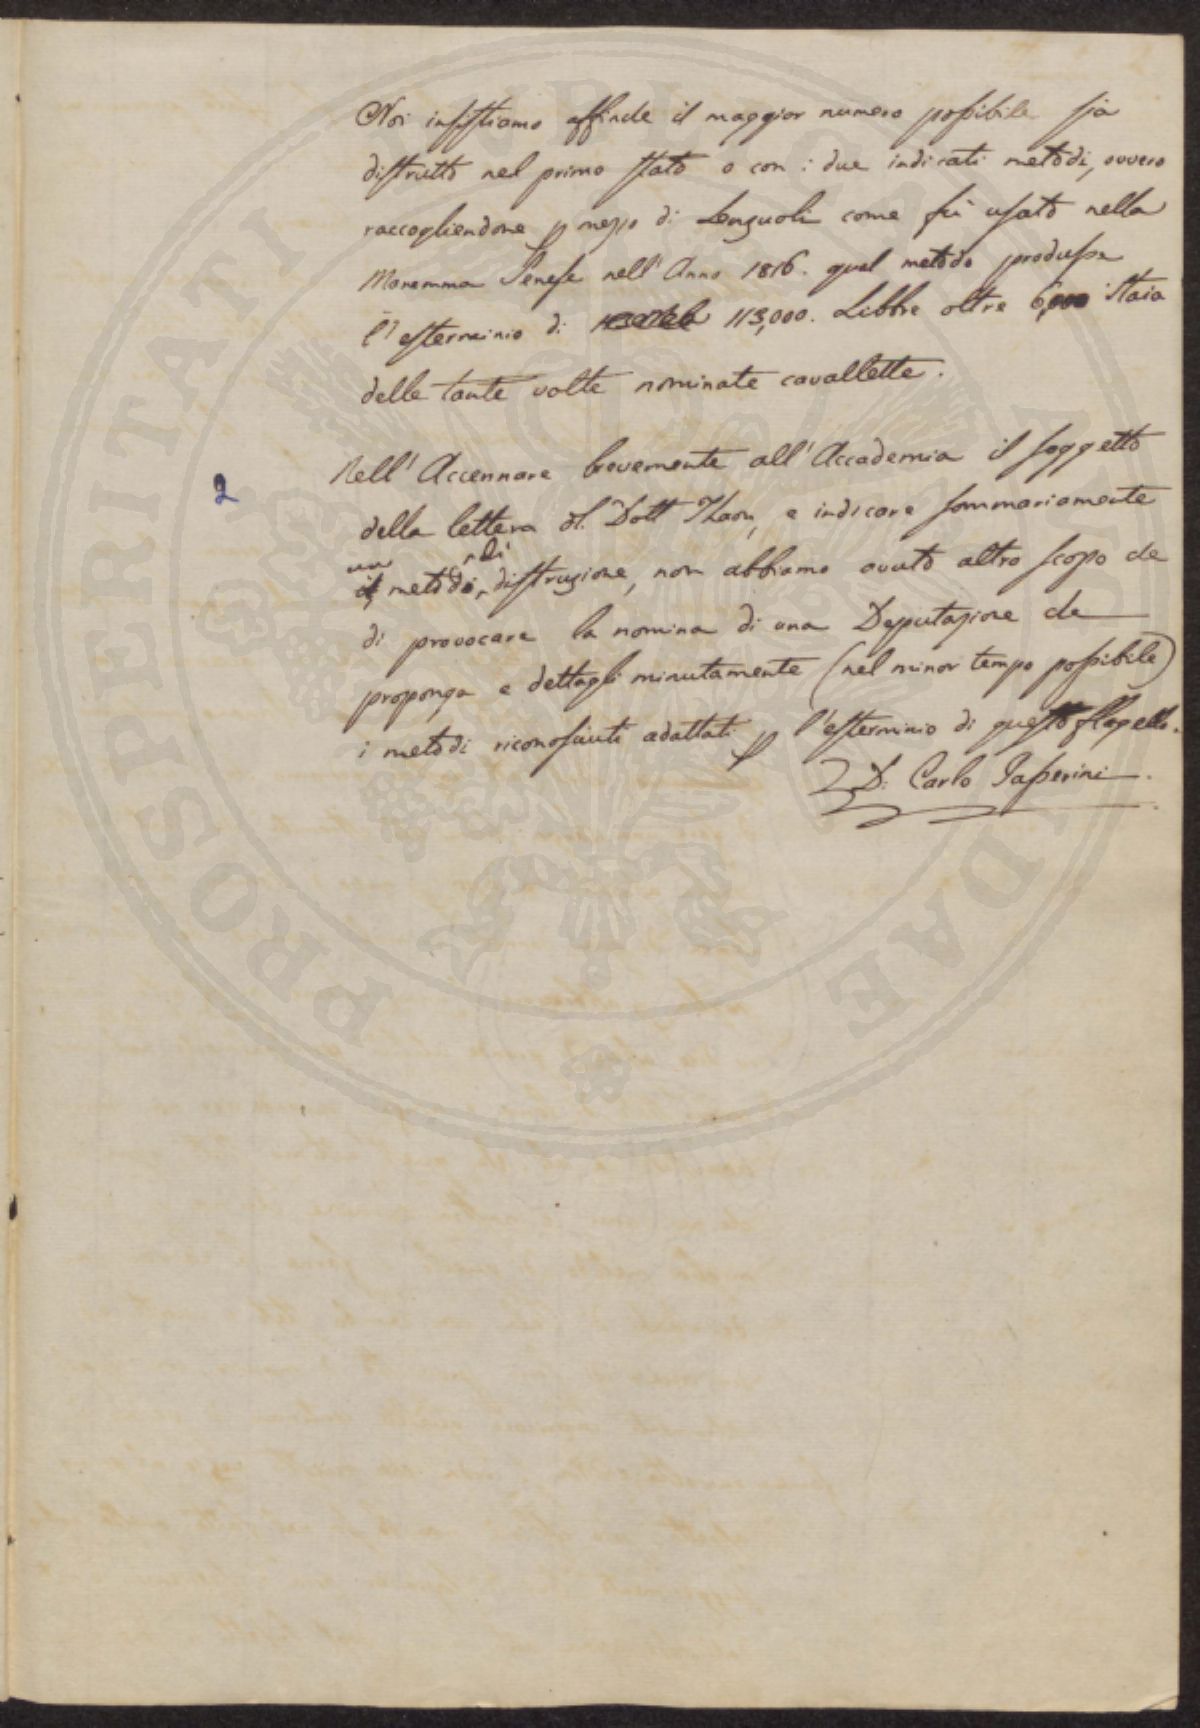 Noi insistiamo affinche il maggior numero possibile sia
distrutto nel primo stato o con i due indicati metodi, ovvero
raccogliendone p mezzo di Lenzuoli come fù usato nella
Maremma Senese nell'Anno 1816. qual metodo produsse
l'esterminio di 113,000. Libbre oltre 6,000 Staia
delle tante volte nominate cavallette.
2
Nell'Accennare brevemente all'Accademia il soggetto
della lettera d. Dott Thaon, e indicare sommariamente
un di
il metodo, distruzione, non abbiamo avuto altro scopo che
di provocare la nomina di una Deputazione che
proponga e dettagli minutamente (nel minor tempo possibile)
i metodi riconosciuti adattati p l'esterminio di questo flagello.
D. Carlo Passerini.
PROSPERITATI PUBLICAE AUGENDAE